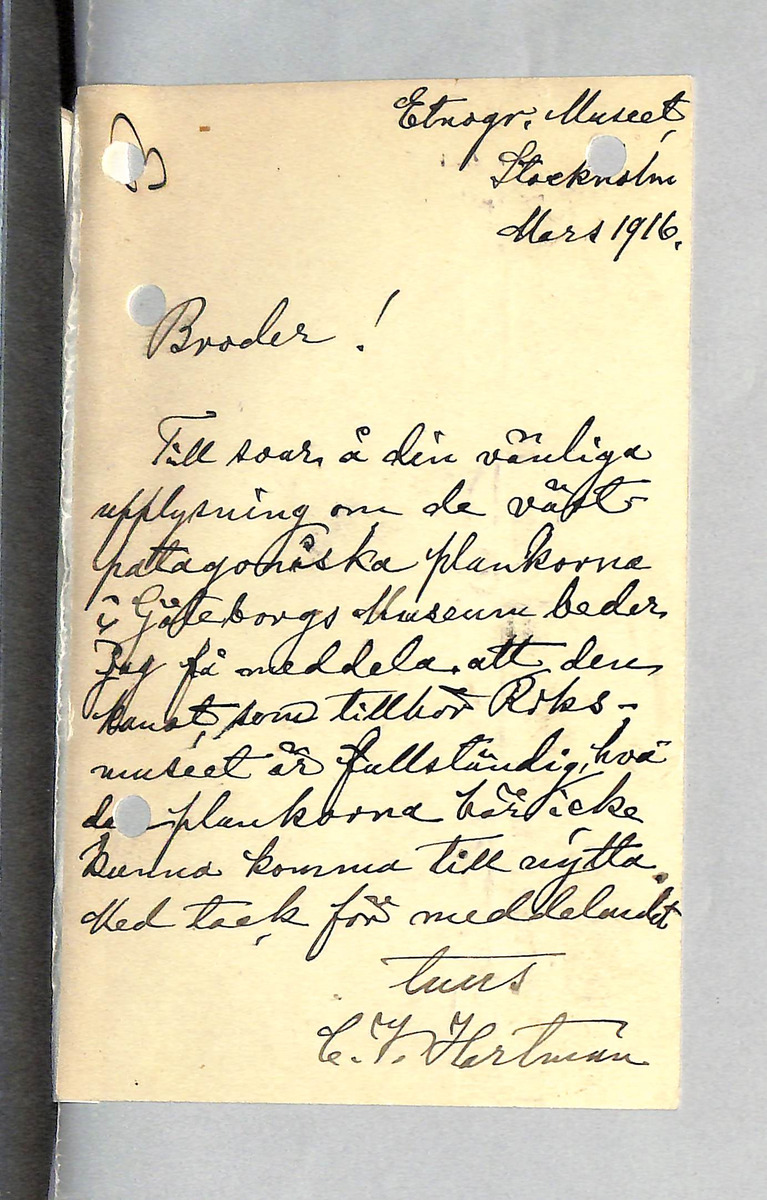 B
Etnogr. Museet,
Stockholm
Mars 1916.
Broder!
Till svar å din vänliga
upplysning om de väst-
patagoniska plankorna
i Göteborgs Museum beder
jag få meddela att den
kanot, som tillhör Riks-
museet är fullständig, hva
de plankorna här icke
kunna komma till nytta.
Med tack för meddelandet
tuus
C. V. Hartman